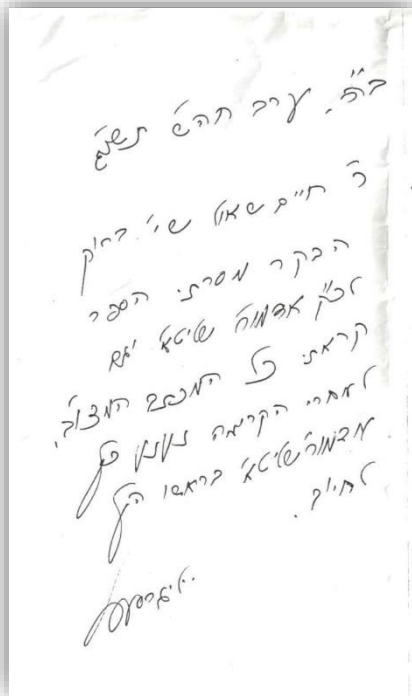 ב"ה. ערב חה"ש תשנ"ג
ר' חיים שאול שי' ברוק
הבקר מסרתי הספר
לכ"ק אדמו"ר שליט"א וגם
קראתי כל המכתב המצו"ב.
לאחרי הקריאה נענע כ"ק
אדמו"ר שליט"א בראשו הק'
לחיוב.